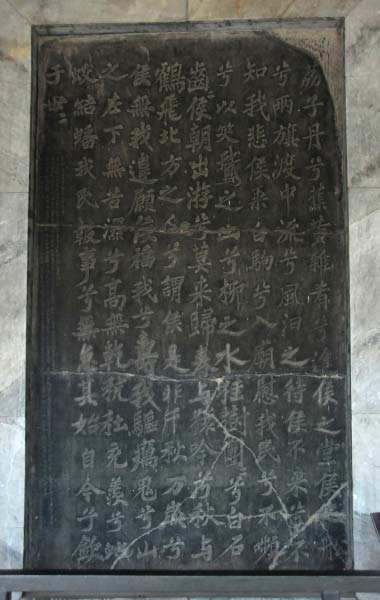 荔子丹兮蕉黃雜肴兮進侯之堂侯之船
兮兩旗渡中流兮風汩之待侯不來兮不
知我悲侯乘白駒兮入廟慰我民兮不嚬
兮以笑鵞之山兮柳之水桂樹團〻兮白石
齒〻侯朝出游兮莫來歸春与猨吟兮秋与
鶴飛北方之人兮謂侯是非千秋万歲兮
侯無我違願侯福我兮壽我驅癘鬼兮山
之左下無苦濕兮高無乾秔稌充羨兮虵
蛟結蟠我民報事兮無怠其始自今兮欽
于世〻